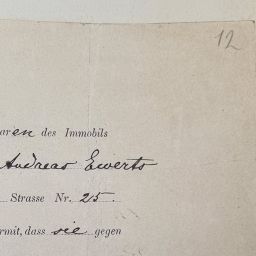 12
aren des Immobils
Andreas Ewerts
Strasse Nr. 25.
rmit, dass sie gegen